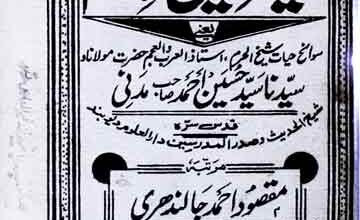 یعنی
سوانح حیات شیخ الحرم، استاذ العرب والعجم حضرت مولانا و
سیدنا سید حسین احمد صاحب مدنی
قدس سرہٗ
شیخ الحدیث و صدر المدرسین دارالعلوم دیوبند
مرتبہ
مقصود احمد جالندھری